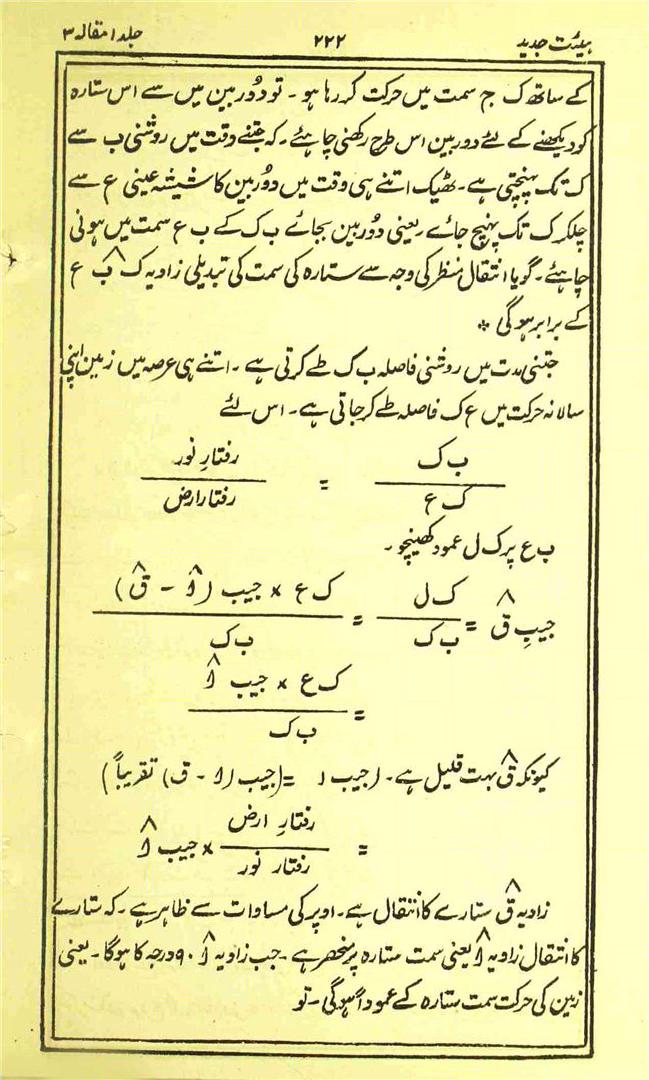 ہیئت جدید ۲۲۲ جلد ۱ مقالہ ۳
کے ساتھ ک ج سمت میں حرکت کر رہا ہو۔ تو دُور بین میں سے اس ستارہ
کو دیکھنے کے لئے دور بین اس طرح رکھنی چاہئے۔ کہ جتنے وقت میں روشنی ب سے
ک تک پہنچتی ہے۔ ٹھیک اتنے ہی وقت میں دُور بین کا شیشہ عینی ع سے
چلکر ک تک پہنچ جائے یعنی دُور بین بجائے ب ک کے ب ع سمت میں ہونی
چاہئے۔ گویا انتقال منظر کی وجہ سے ستارہ کی سمت کی تبدیلی زاویہ ک ب̂ ع
کے برابر ہوگی ٭
جتنی مدت میں روشنی فاصلہ ب ک طے کرتی ہے۔ اتنے ہی عرصہ میں زمین اپنی
سالانہ حرکت میں ع ک فاصلہ طے کر جاتی ہے۔ اس لئے
ب ک = رفتارِ نور
ک ع رفتار ارض
ب ع پر ک ل عمود کھینچو۔
ک ل ک ع × جیب (ا̂ - ق̂)
جیبِ ق̂ = =
ب ک ب ک
ک ع × جیب ا̂
=
ب ک
کیونکہ ق̂ بہت قلیل ہے۔ (جیب ا = (جیب (ا - ق) تقریباً)
رفتارِ ارض
= × جیب ا̂
رفتار نور
زاویہ ق̂ ستارے کا انتقال ہے۔ اوپر کی مساوات سے ظاہر ہے۔ کہ ستارے
کا انتقال زاویہ ا̂ یعنی سمت ستارہ پر منحصر ہے۔ جب زاویہ ا̂ ۹۰ درجہ کا ہوگا۔ یعنی
زمین کی حرکت سمت ستارہ کے عموداً ہوگی۔ تو